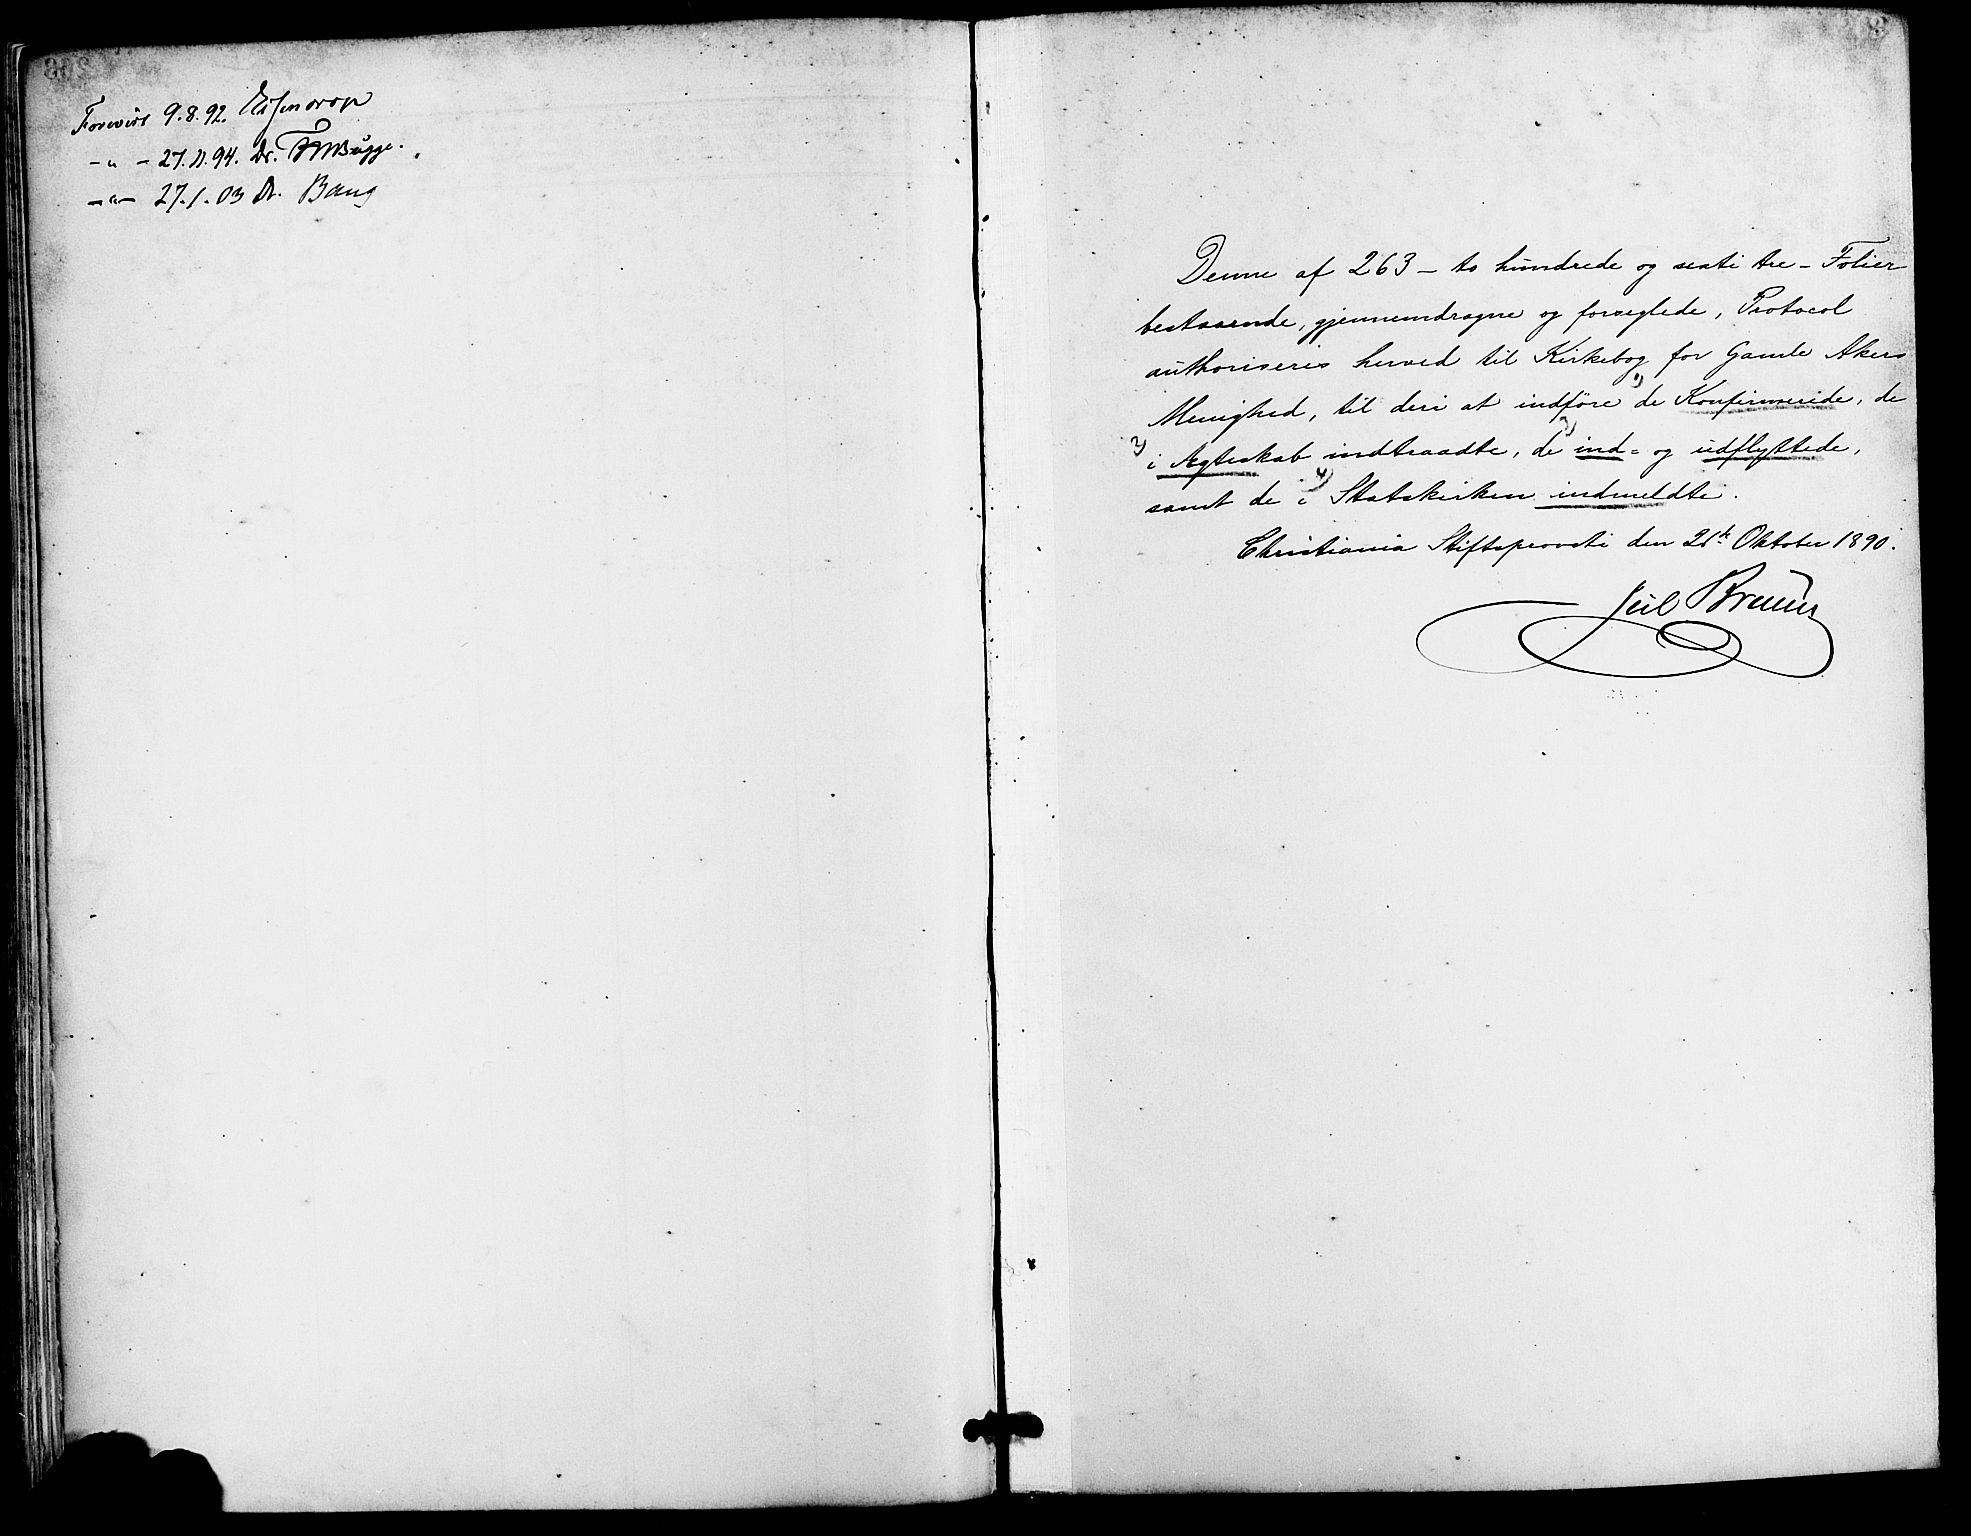 Forevist 9.8.92. Essendrop
-"- 27.11.94. Dr. FWBugge.
-"- 27.1.03 Dr. Bang
Denne af 263 – to hundrede og sexti tre – Folier
bestaaende, gjennemdragne og forseglede, Protocol
authoriseres herved til Kirkebog for Gamle Akers
Menighed, til deri at indføre 1) de Konfirmerede, de
2) i Ægteskab indtraadte, de 3) ind- og udflyttede,
samt de i 4) Statskirken indmeldte.
Christiania Stiftsprovsti den 21de Oktober 1890.
Jul Bruun